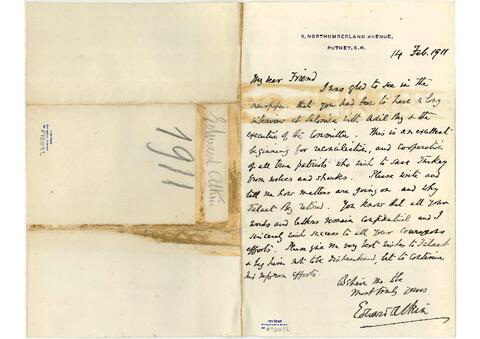 9, NORTHUMBERLAND AVENUE,
PUTNEY, S.W.
14 Feb. 1911
My dear Friend
I was glad to see in the
newspapers that you had been to have a long
interview at Salonica with Adil Bey & the
executive of the Committee. This is an excellent
beginning for reconciliation, and cooperation
of all true patriots who wish to save Turkey
from wolves and sharks. Please write and
tell me how matters are going on and why
Talaat Bey retired. You know that all your
words and letters remain confidential and I
sincerely wish success to all your courageous
efforts. Please give my very best wishes to Talaat
& beg him not to be disheartened, but to continue
his reform efforts.
Believe me to be
Most truly yours
Edward Atkin
Edward Atkin
1911